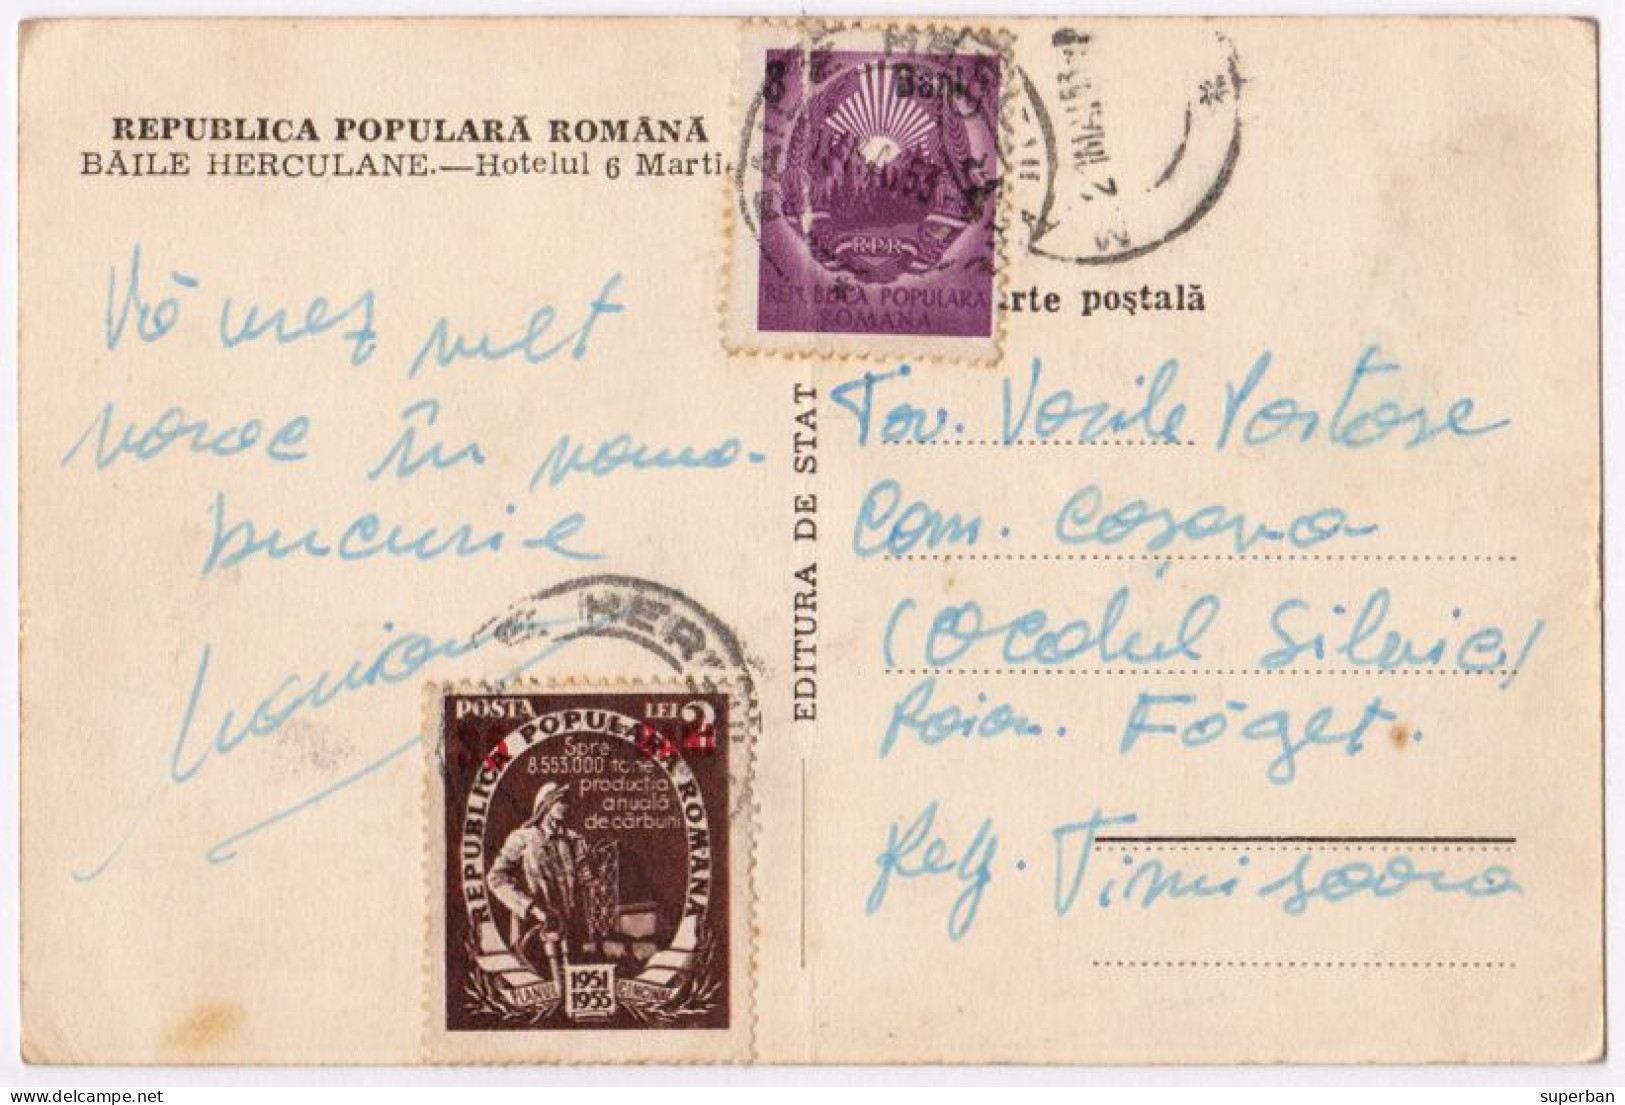 REPUBLICA POPULARĂ ROMÂNĂ
BĂILE HERCULANE.—Hotelul 6 Marti
Vă urez mult
noroc în
bucurie
8 Bani
R.P.R.
REPUBLICA POPULARA
ROMANA
BĂILE HERCULANE
53
2 MAI 53
EDITURA DE STAT
arte poștală
Tov. Vasile
Com. Coșava
(Ocolul Silvic)
Raion. Făget.
Reg. Timișoara
HER
POSTA LEI 2
REPUBLICA POPULARA ROMANA
Spre
8.553.000 tone
producția
anuală
de cărbuni
1951
1955
PLANUL CINCINAL
superban